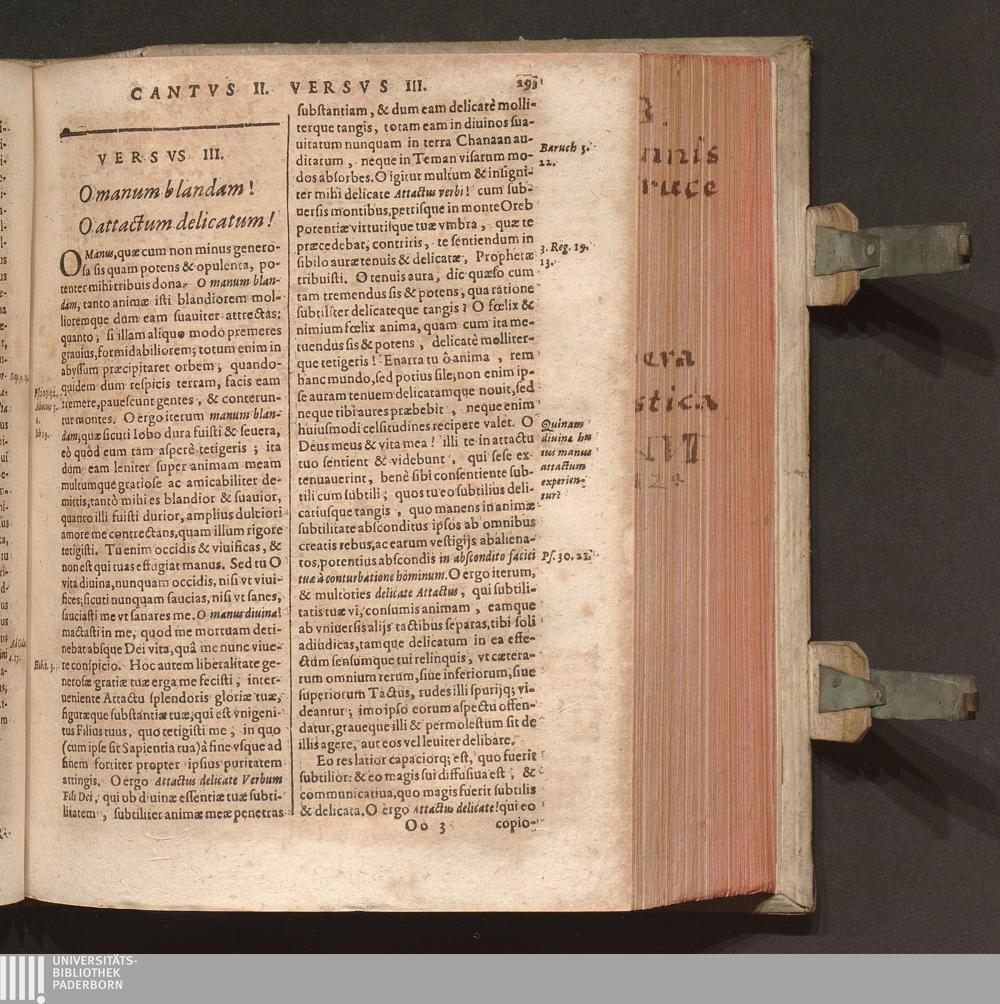 CANTVS II. VERSVS III. 293
VERSVS III.
O manum blandam!
O attactum delicatum!
O Manus, quæ cum non minus genero-
sa sis quam potens & opulenta, po-
tenter mihi tribuis dona. O manum blan-
dam, tanto animæ isti blandiorem mol-
lioremque dum eam suauiter attrectas;
quanto, si illam aliquo modo premeres
grauius, formidabiliorem; totum enim in
abyssum præcipitaret orbem, quando-
quidem dum respicis terram, facis eam
tremere, pauescunt gentes, & conterun-
tur montes. O ergo iterum manum blan-
dam; quæ sicuti Iobo dura fuisti & seuera,
eò quòd eum tam asperè tetigeris; ita
dum eam leniter super animam meam
multumque gratiose ac amicabiliter de-
mittis, tantò mihi es blandior & suauior,
quanto illi fuisti durior, amplius dulciori
amore me contrectans, quam illum rigore
tetigisti. Tu enim occidis & viuificas, &
non est qui tuas effugiat manus. Sed tu O
vita diuina, nunquam occidis, nisi vt viui-
fices; sicuti nunquam saucias, nisi vt sanes,
sauciasti me vt sanares me. O manus diuina!
mactasti in me, quod me mortuam deti-
nebat absque Dei vita, quâ me nunc viue-
te conspicio. Hoc autem liberalitate ge-
nerosæ gratiæ tuæ erga me fecisti, inter-
ueniente Attactu splendoris gloriæ tuæ,
figuræque substantiæ tuæ, qui est vnigeni-
tus Filius tuus, quo tetigisti me, in quo
(cum ipse sit Sapientia tua) à fine vsque ad
finem fortiter propter ipsius puritatem
attingis. O ergo Attactus delicate Verbum
Fili Dei, qui ob diuinæ essentiæ tuæ subti-
litatem, subtiliter animæ meæ penetras
Habac. 3.
substantiam, & dum eam delicatè molli-
terque tangis, totam eam in diuinos sua-
uitatum nunquam in terra Chanaan au-
ditarum, neque in Teman visarum mo-
dos absorbes. O igitur multum & insigni-
ter mihi delicate Attactus verbi! cum sub-
uersis montibus, petrisque in monte Oreb
potentiæ virtutisque tuæ vmbra, quæ te
præcedebat, contritis, te sentiendum in
sibilo auræ tenuis & delicatæ, Prophetæ
tribuisti. O tenuis aura, dic quæso cum
tam tremendus sis & potens, qua ratione
subtiliter delicateque tangis? O fœlix &
nimium fœlix anima, quam cum ita me-
tuendus sis & potens, delicatè molliter-
que tetigeris! Enarra tu ô anima, rem
hanc mundo, sed potius sile; non enim ip-
se auram tenuem delicatamque nouit, sed
neque tibi aures præbebit, neque enim
huiusmodi celsitudines recipere valet. O
Deus meus & vita mea! illi te in attactu
tuo sentient & videbunt, qui sese ex-
tenuauerint, benè sibi consentiente sub-
tili cum subtili; quos tu eo subtilius deli-
catiusque tangis, quo manens in animæ
subtilitate absconditus ipsos ab omnibus
creatis rebus, ac earum vestigijs abaliena-
tos, potentius abscondis in abscondito faciei
tuæ à conturbatione hominum. O ergo iterum,
& multoties delicate Attactus, qui subtili-
tatis tuæ vi, consumis animam, eamque
ab vniuersis alijs tactibus separas, tibi soli
adiudicas, tamque delicatum in ea effe-
ctum sensumque tui relinquis, vt cætera-
rum omnium rerum, siue inferiorum, siue
superiorum Tactus, rudes illi spurijq; vi-
deantur; imo ipso eorum aspectu offen-
datur, graueque illi & permolestum sit de
illis agere, aut eos vel leuiter delibare.
Eo res latior capaciorq; est, quo fuerit
subtilior: & eo magis sui diffusiua est, &
communicatiua, quo magis fuerit subtilis
& delicata. O ergo Attactus delicate! qui eo
Oo 3 copio-
Baruch 3.
22.
3. Reg. 19.
13.
Quinam
diuinæ hu
ius manus
attactum
experien-
tur?
Ps. 30. 22.
UNIVERSITÄTS-
BIBLIOTHEK
PADERBORN